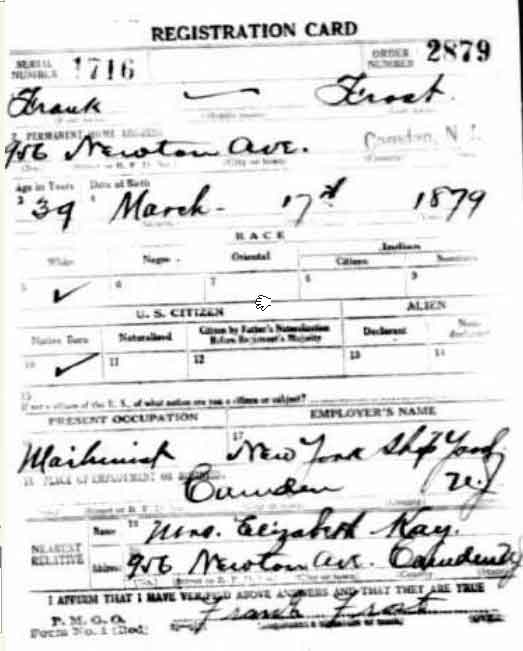 REGISTRATION CARD
SERIAL NUMBER 1716 ORDER NUMBER 2879
Frank — Frost.
2 PERMANENT HOME ADDRESS
956 Newton Ave. Camden, N. J.
Age in Years Date of Birth
3 39 4 March - 17th 1879
RACE
White Negro Oriental Indian
Citizen Noncitizen
5 ✓ 6 7 8 9
U. S. CITIZEN ALIEN
Native Born Naturalized Citizen by Father's Naturalization Before Registrant's Majority Declarant Non-declarant
10 ✓ 11 12 13 14
15
If not a citizen of the U. S., of what nation are you a citizen or subject?
PRESENT OCCUPATION EMPLOYER'S NAME
Machinist 17 New York Ship Yard
PLACE OF EMPLOYMENT OR BUSINESS
Camden N.J
NEAREST RELATIVE
Name 19 Mrs. Elizabeth Kay.
Address 956 Newton Ave. Camden NJ
I AFFIRM THAT I HAVE VERIFIED ABOVE ANSWERS AND THAT THEY ARE TRUE
P. M. G. O.
Form No. 1 (Red) Frank Frost